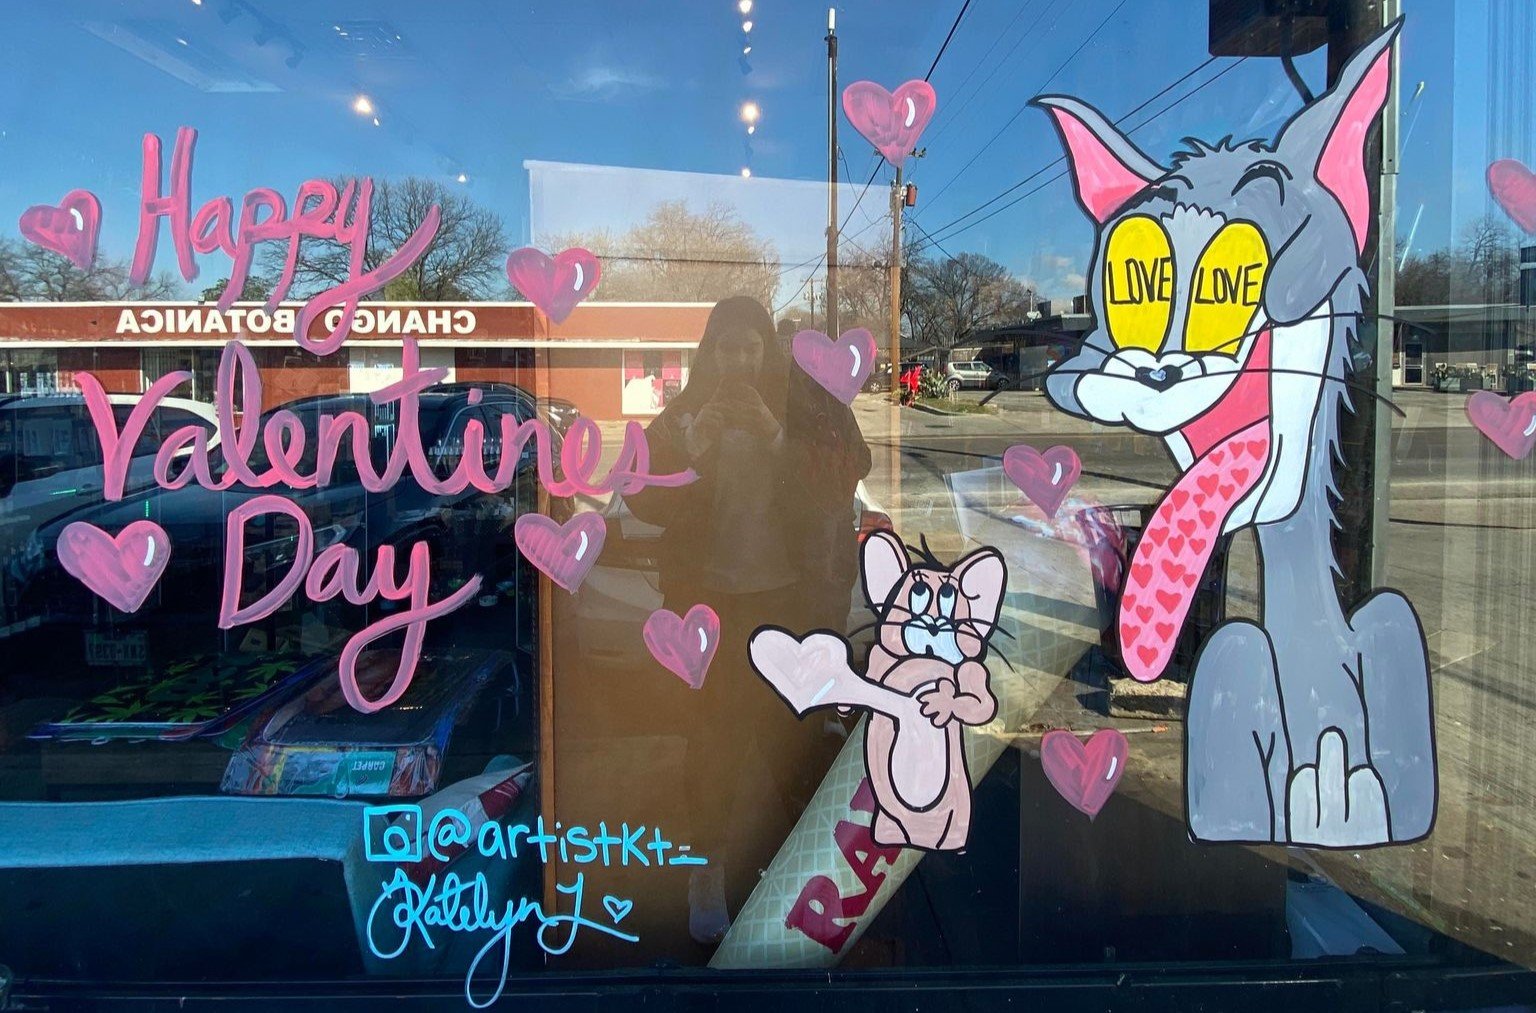 Happy
Valentines
Day
CHANGO BOTANICA
LOVE LOVE
CARPET
RA
@artistkt_
Katelyn L